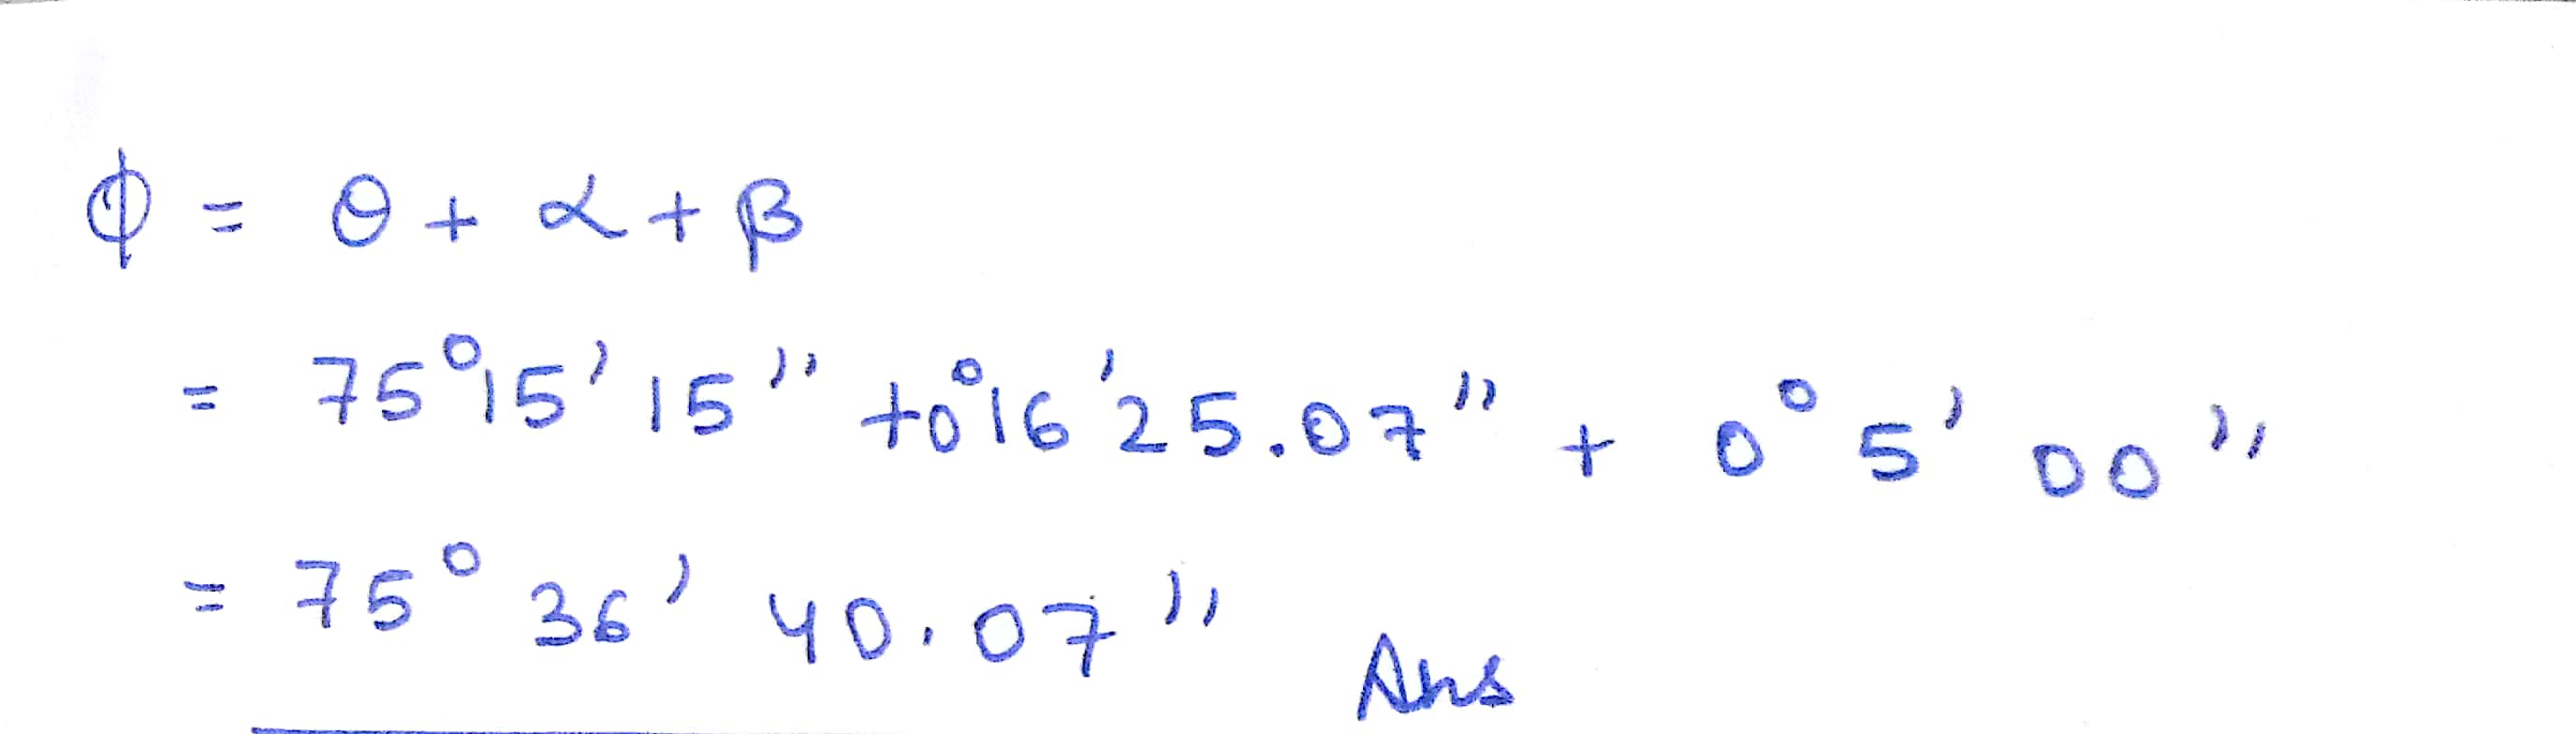 ϕ = θ + α + β
= 75°15' 15" + 0°16'25.07" + 0° 5' 00"
= 75° 36' 40.07" Ans